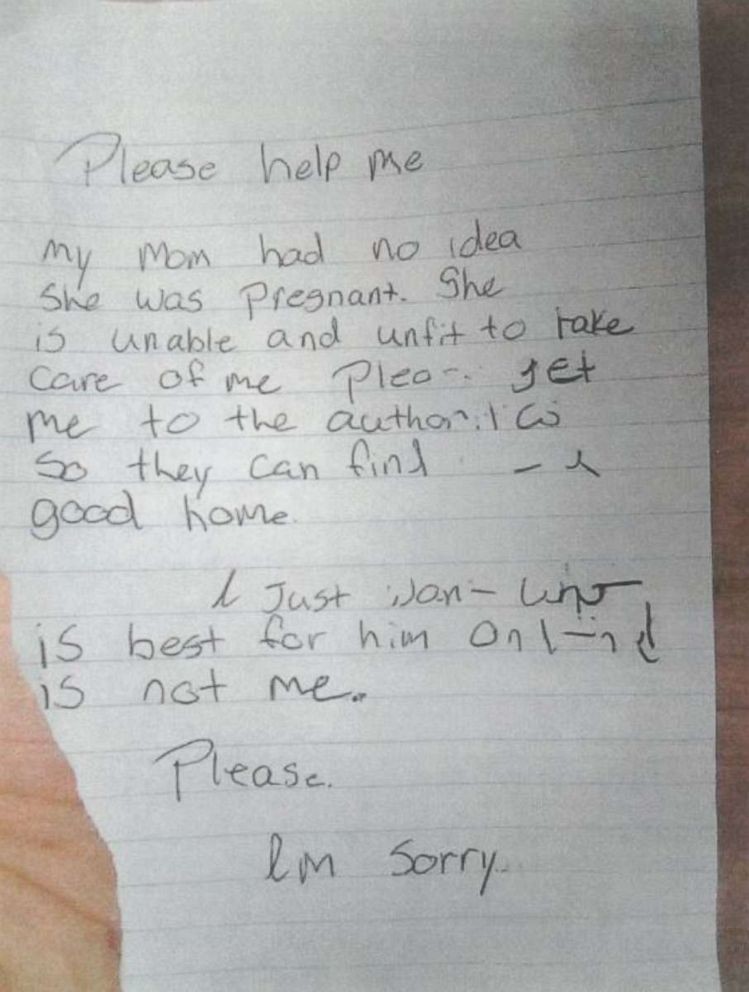 Please help me
my mom had no idea
She was Pregnant. She
is unable and unfit to take
care of me get
me to the
So they can find
good home.
I Just
is best for him
is not me..
Please.
Im Sorry.